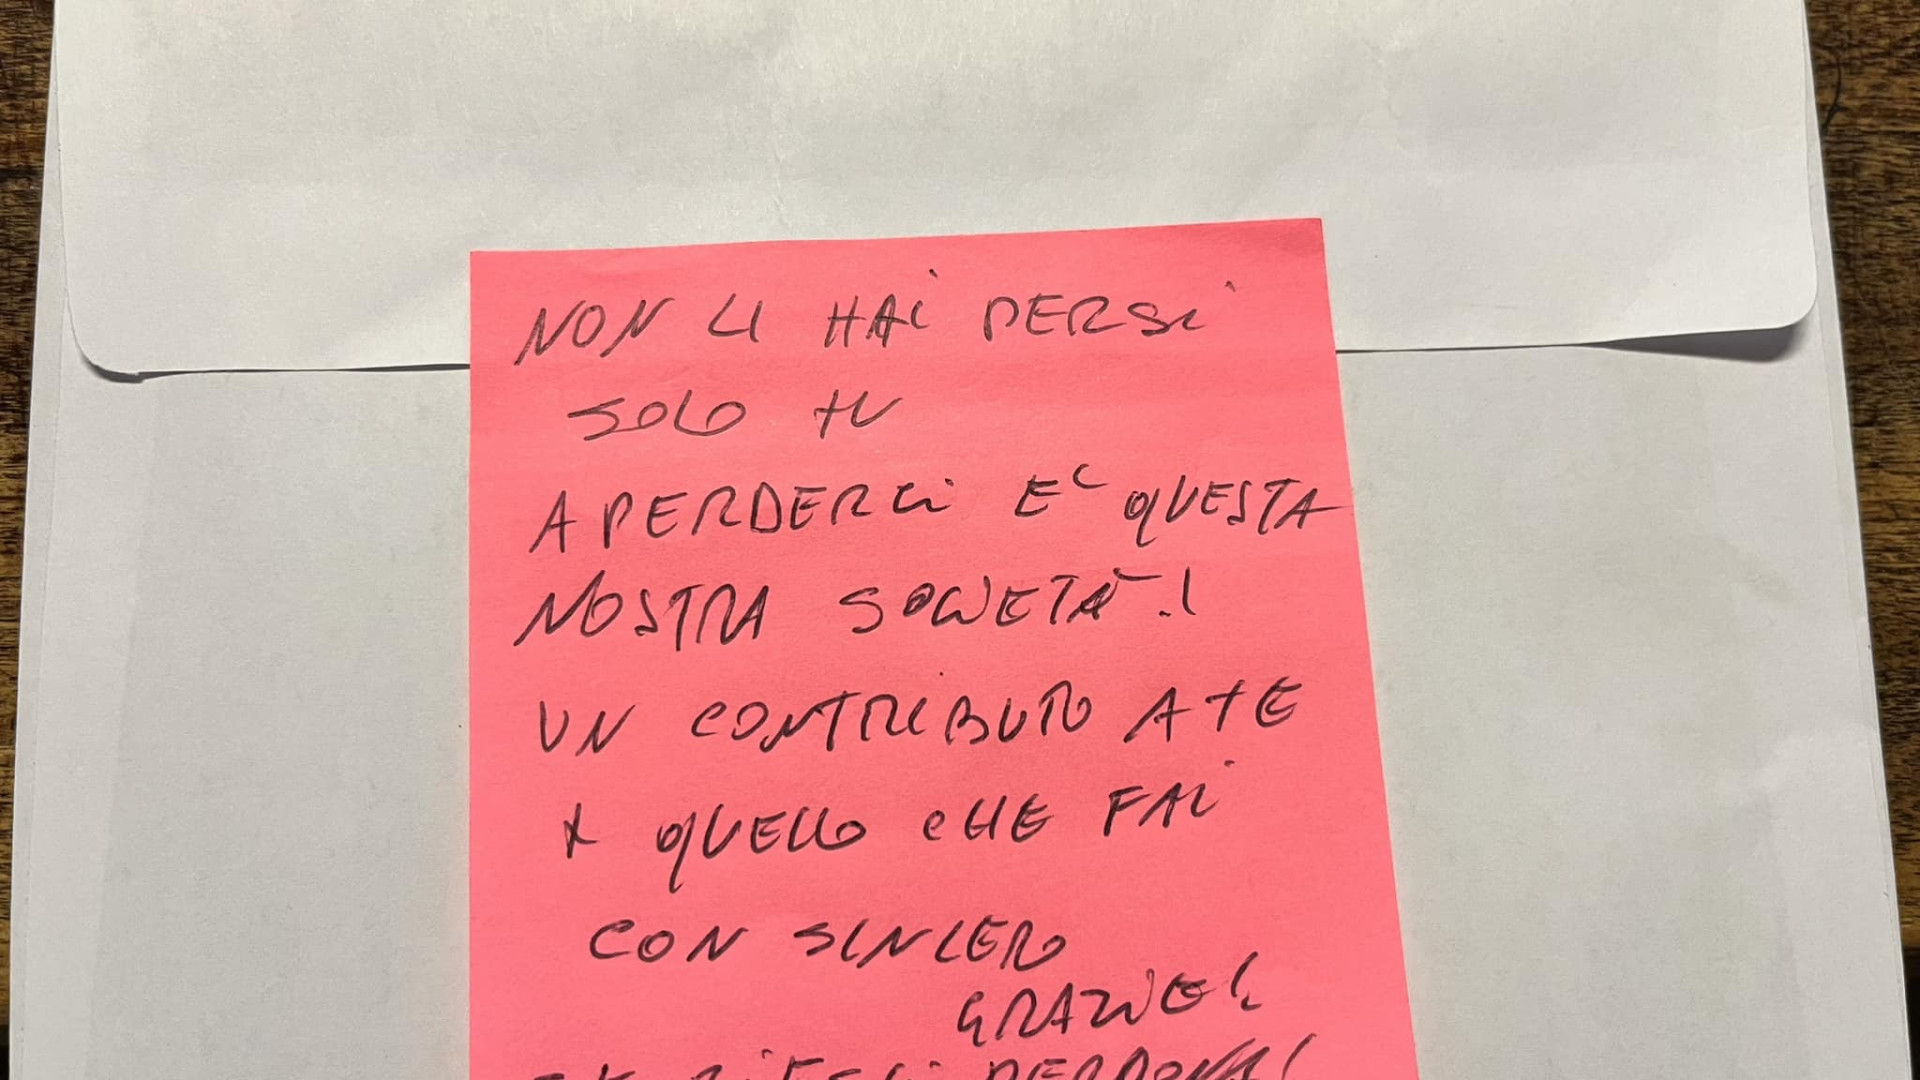 NON LI HAI PERSI
SOLO TU
A PERDERCI E' QUESTA
NOSTRA SOCIETÀ.!
UN CONTRIBUTO A TE
X QUELLO CHE FAI
CON SINCERO
GRAZIE!
RIESCI PERDONA!